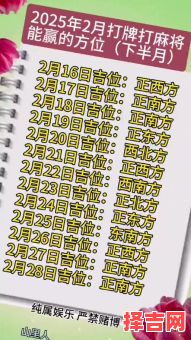 2025年2月打牌打麻将
能赢的方位（下半月）
2月16日吉位：正西方
2月17日吉位：正南方
2月18日吉位：正南方
2月19日吉位：正东方
2月20日吉位：西北方
2月21日吉位：正西方
2月22日吉位：西南方
2月23日吉位：正北方
2月24日吉位：正东方
2月25日吉位：东南方
2月26日吉位：正西方
2月27日吉位：正南方
2月28日吉位：正南方
纯属娱乐 严禁赌博
山里人
择吉网